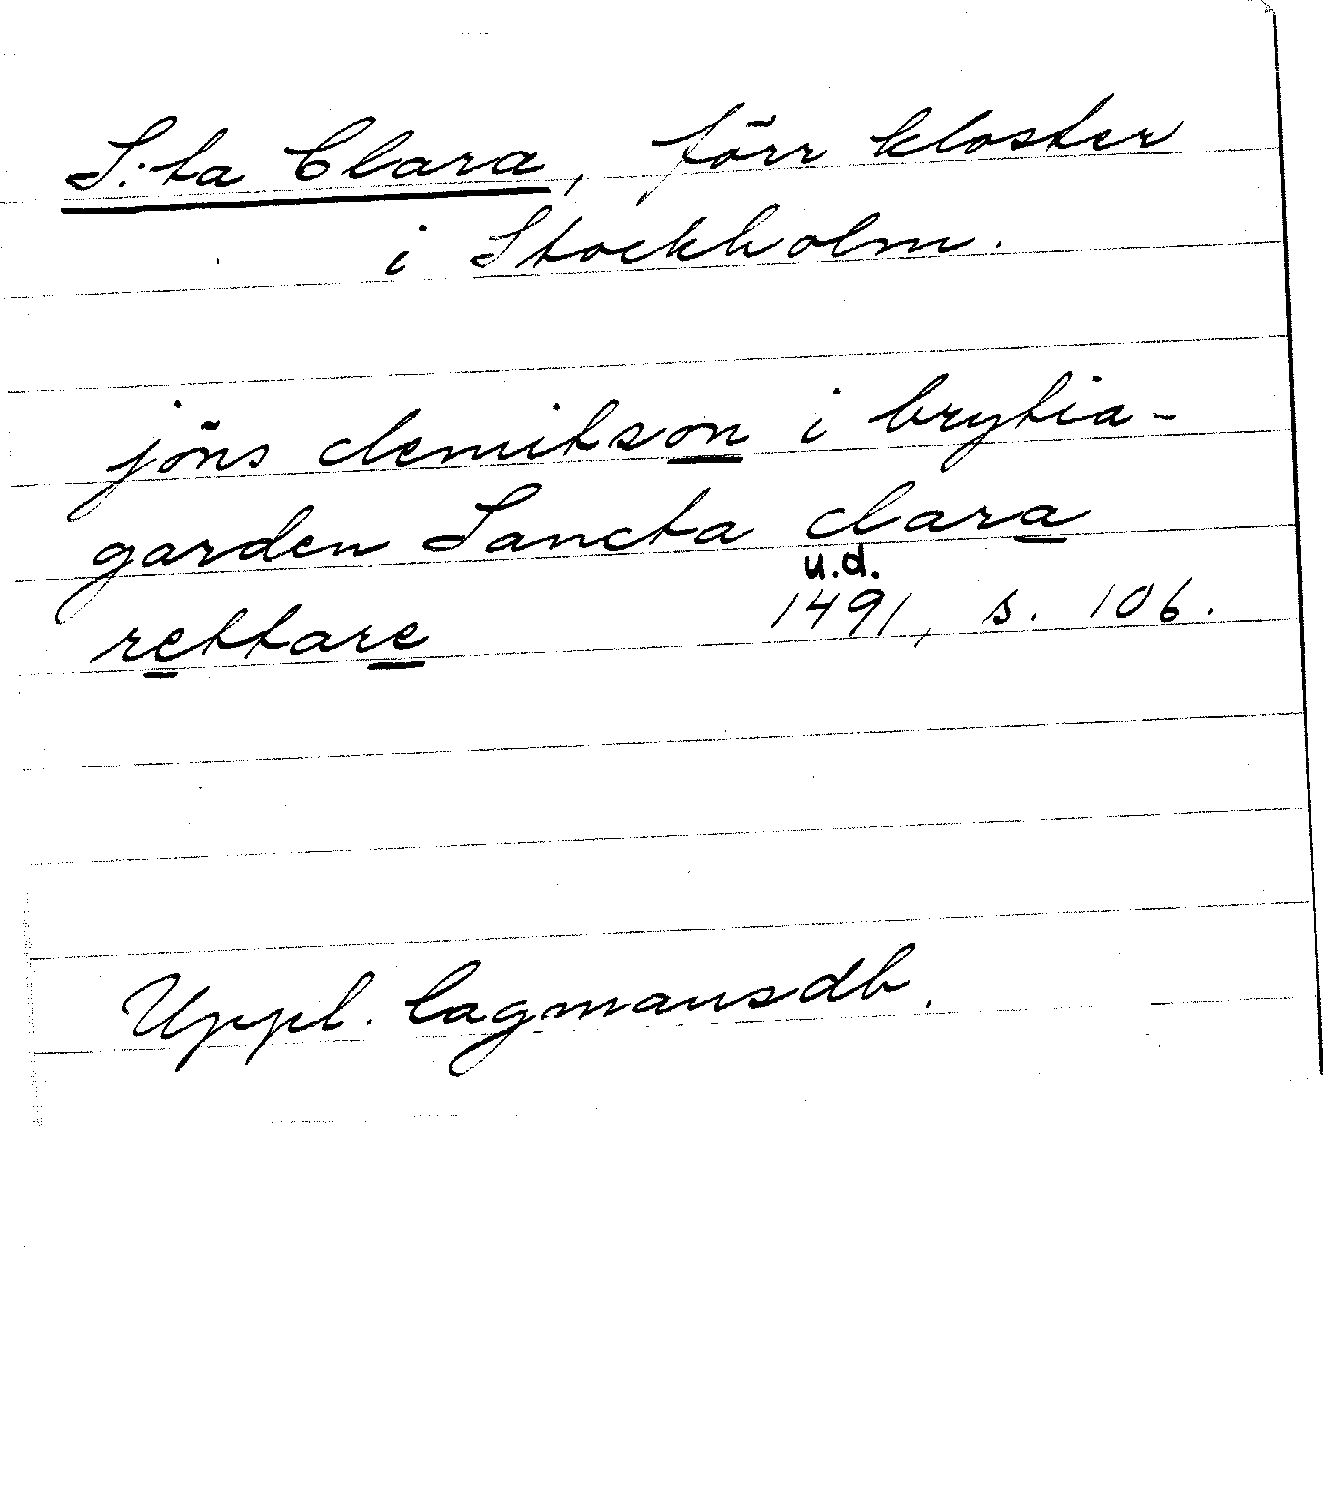 S:ta Clara, förr kloster
i Stockholm.
jöns clemitson i brytia-
garden Sancta clara
u.d.
rettare 1491, s. 106.
Uppl. lagmansdb.